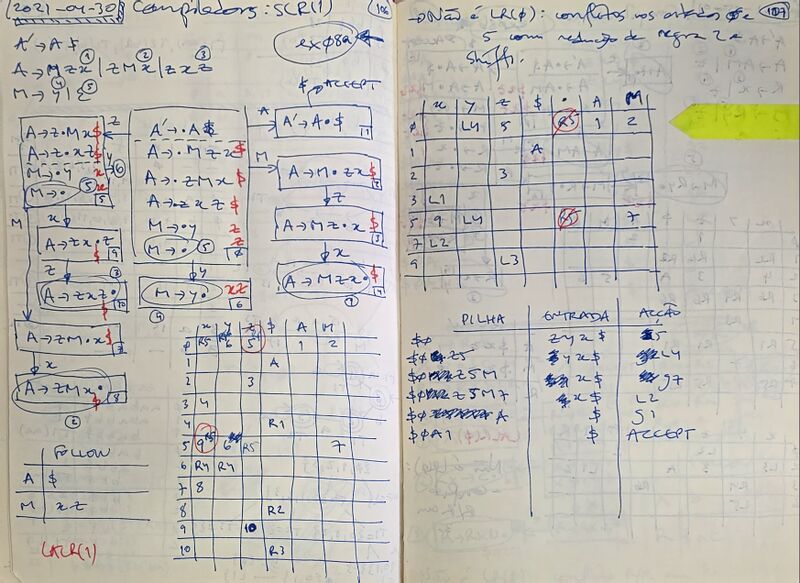 (2021-04-30) Compiladores: SLR(1) 106
ex08a
A'→A$
A→Mzx① | zMx② | zxz③
M→y④ | ε⑤
$→ACCEPT
A→z·Mx $
A→z·xz $
M→·y x
M→· ⑤ x
5
A'→·A$
A→·Mzx $
A→·zMx $
A→·zxz $
M→·y z
M→· ⑤ z
A'→A·$
1
A→M·zx $
2
A→Mz·x $
3
A→Mzx· $
4
①
A→zx·z $
9
A→zxz· $
10
③
M→y· xz
6
④
A→zM·x $
7
A→zMx· $
8
②
FOLLOW
A $
M xz
LALR(1)
x y z $ A M
0 R5 6 5 1 2
1 A
2 3
3 4
4 R1
5 9 R5 6 R5 7
6 R4 R4
7 8
8 R2
9 10
10 R3
107
→Não é LR(0): conflitos nos estados 0 e
5 com redução de regra 2 e
shift.
x y z $ · A M
0 L4 5 R5 1 2
1 A
2 3
3 L1
5 9 L4 R5 7
7 L2
9 L3
PILHA ENTRADA ACÇÃO
$0 zyx$ 5
$0z5 yx$ L4
$0z5M x$ g7
$0z5M7 x$ L2
$0A $ g1
$0A1 $ ACCEPT